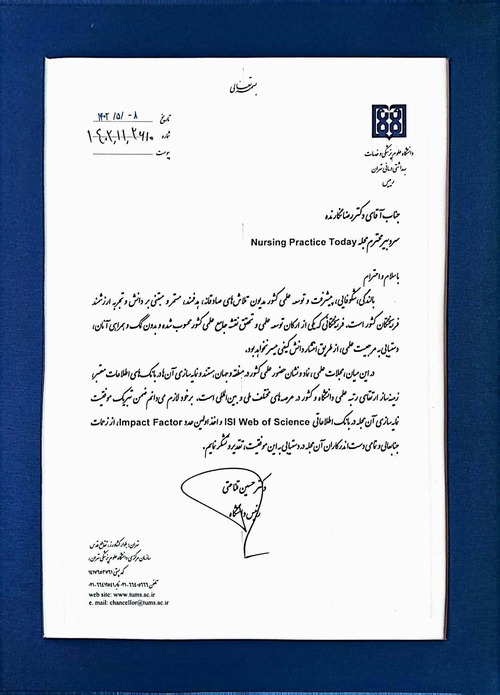 بسمه تعالی
تاریخ ۱۴۰۲/۵/۰۸
شماره
پیوست
دانشگاه علوم پزشکی و خدمات
بهداشتی درمانی تهران
رییس
جناب آقای دکتر رضا نگارنده
سردبیر محترم مجله Nursing Practice Today
با سلام و احترام
بالندگی، شکوفایی، پیشرفت و توسعه علمی کشور مدیون تلاش‌های صادقانه، هدفمند، مستمر و مبتنی بر دانش و تجربه ارزشمند
فرهیختگان کشور است. فرهیختگانی که یکی از ارکان توسعه علمی و تحقق نقشه جامع علمی کشور محسوب شده و بدون کمک و همراهی آنان،
دستیابی به مرجعیت علمی، از طریق انتشار دانش گیتی میسر نخواهد بود.
در این میان، مجلات علمی، نماد و نشان حضور علمی کشور در منطقه و جهان هستند و نمایه‌سازی آن‌ها در بانک‌های اطلاعات معتبر،
زمینه‌ساز ارتقای رتبه علمی دانشگاه و کشور در عرصه‌های مختلف ملی و بین‌المللی است. بر خود لازم می‌دانم ضمن تبریک موفقیت
نمایه‌سازی آن مجله در بانک اطلاعاتی ISI Web of Science و اخذ اولین عدد Impact Factor، از زحمات
جنابعالی و تمامی دست‌اندرکاران آن مجله در دستیابی به این موفقیت، تقدیر و تشکر نمایم.
دکتر حسین قناعتی
رئیس دانشگاه
تهران، بلوار کشاورز، تقاطع قدس
سازمان مرکزی دانشگاه علوم پزشکی تهران،
کد پستی
تلفن
web site: www.tums.ac.ir
e. mail: chancellor@tums.ac.ir